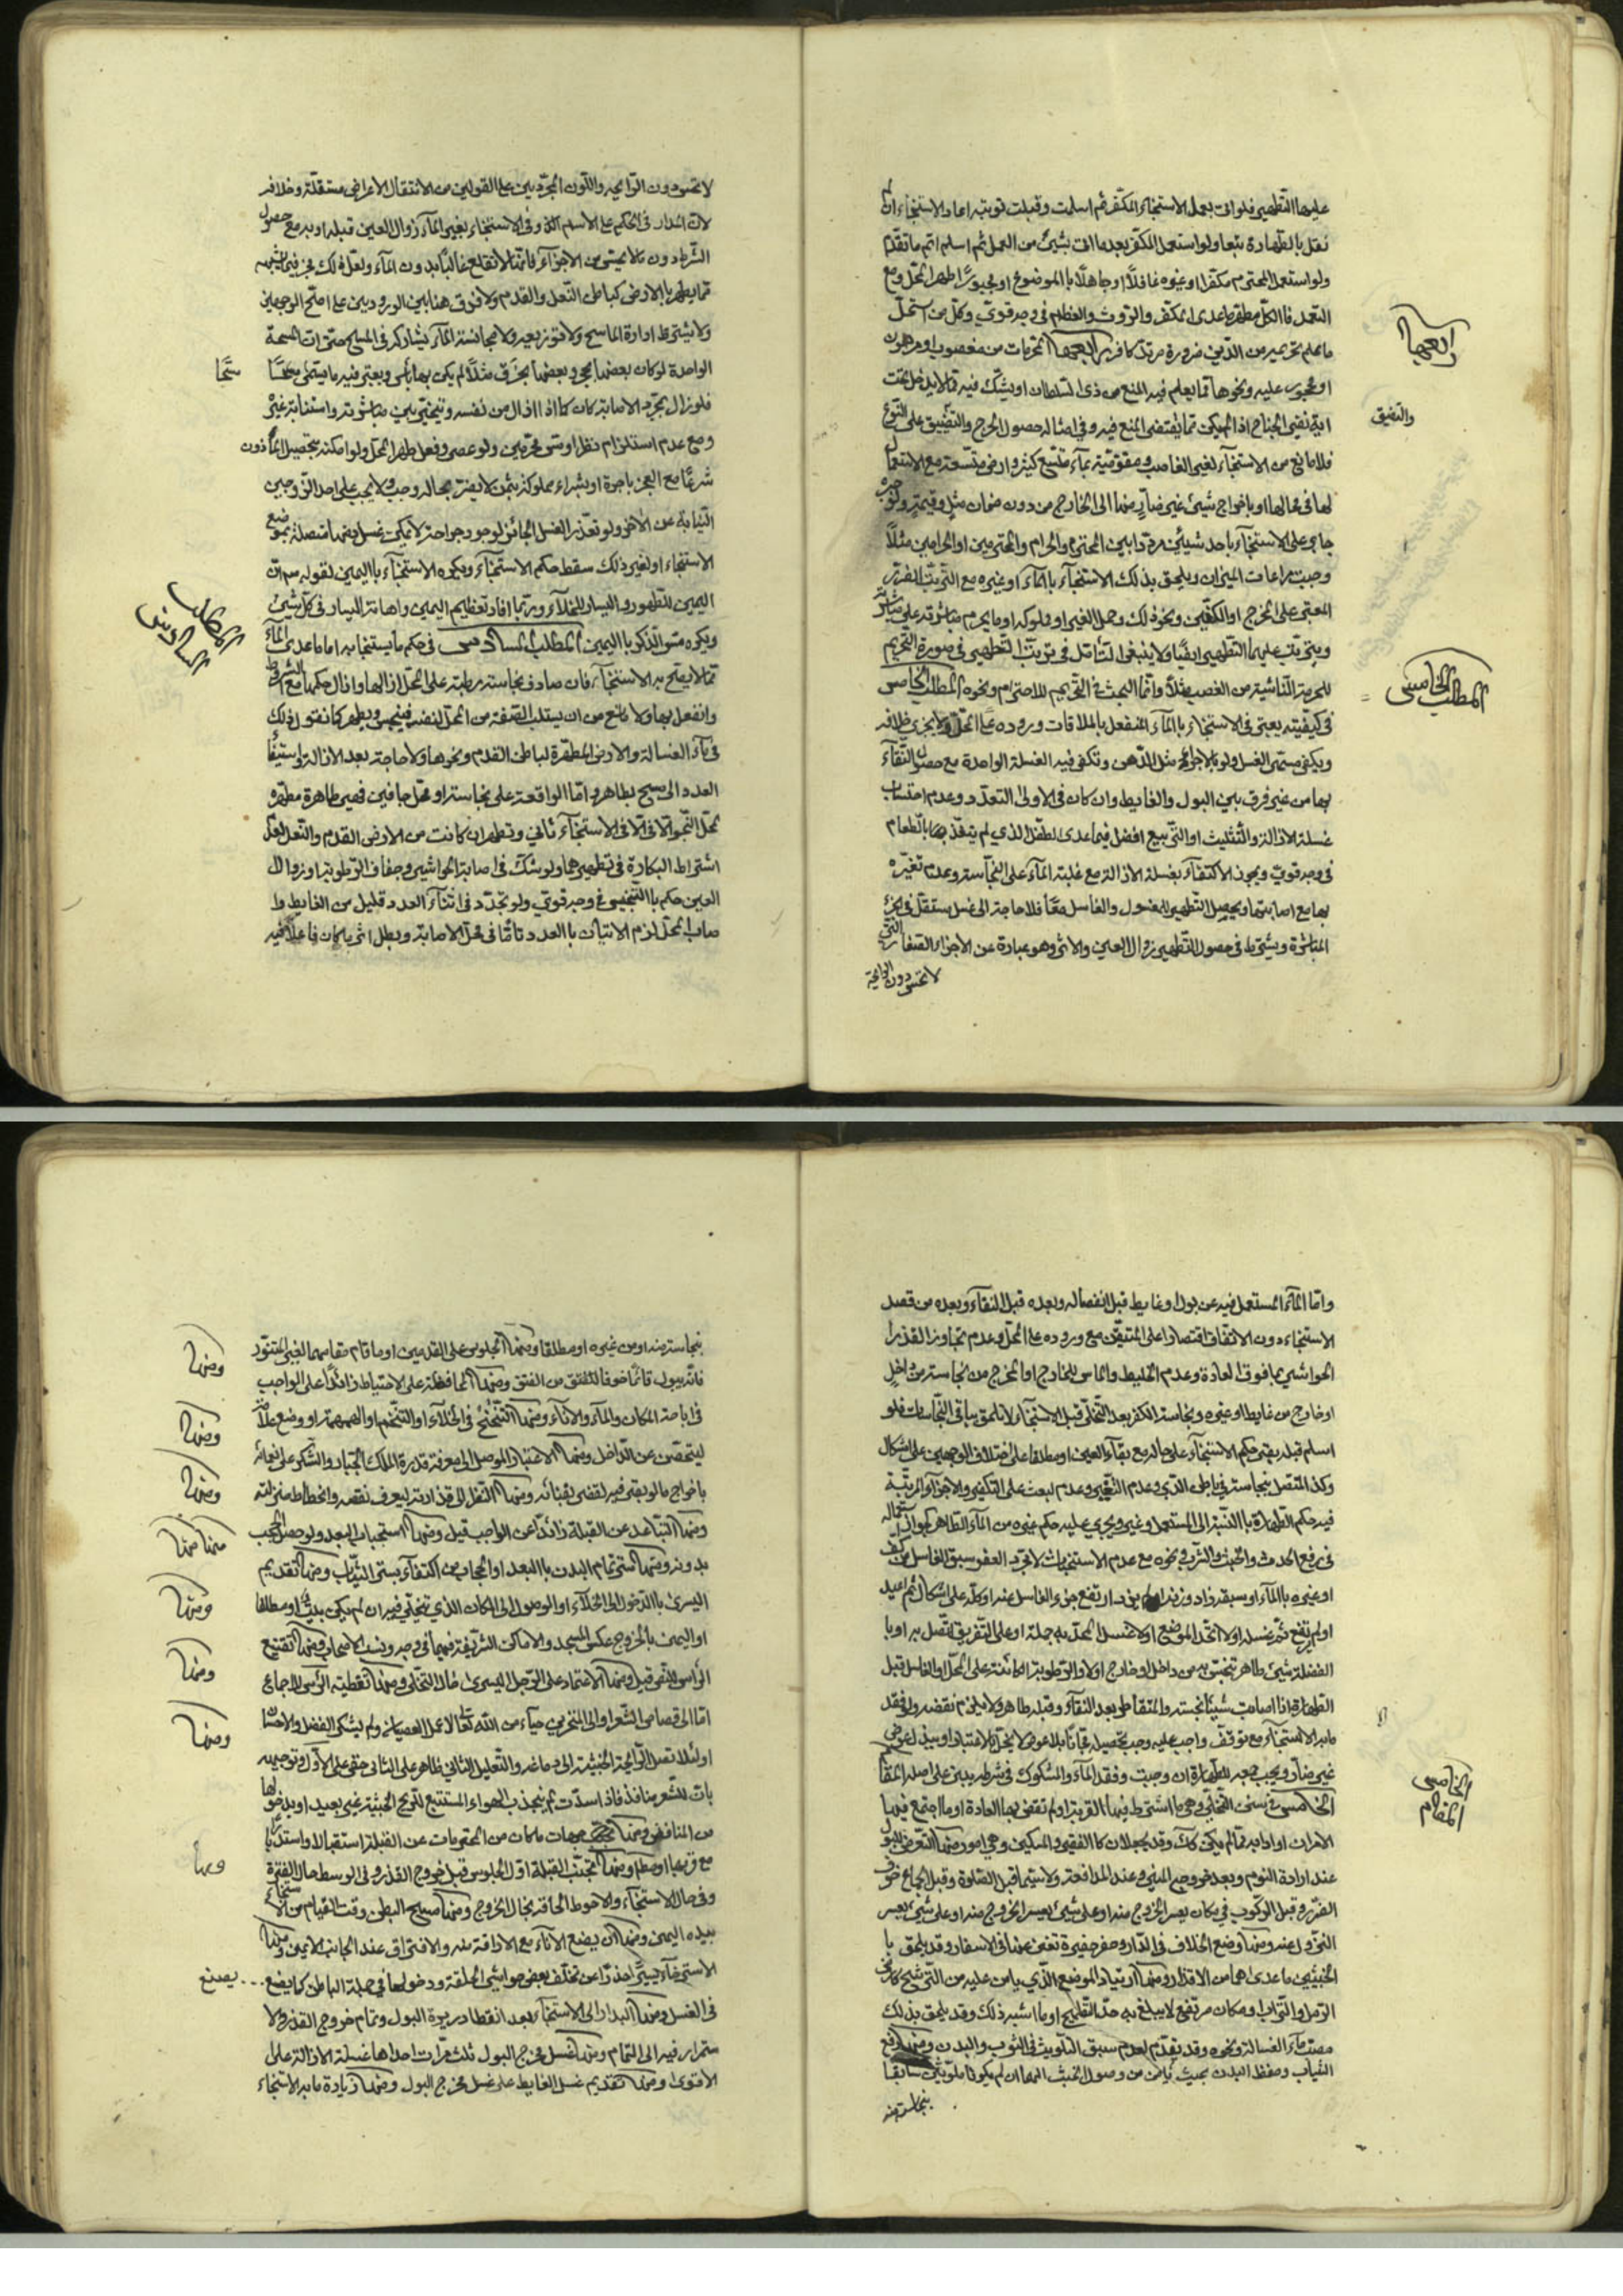 عليها التطهير فلو اتت بعمل الاستنجاء المكفر ثم اسلمت وقبلت توبته اعاد الاستنجاء ان لم
نقل بالطهارة تبعا ولو استعمل المكفر بعدما اتى بشيئ من العمل ثم اسلم اتم ما تقدم
ولو استعمل المحترم مكفرا او غيره غافلا او جاهلا بالموضوع او مجبورا طهر المحل ومع
التعمد فالكل مطهر ما عدى المكفر والروث والعظام في وجه قوي وكل من استحل
ما علم تحريمه من الدين ضرورة مرتد كافر رابعها المحرمات من مغصوب او مرهون
او محجور عليه ونحوها مما يعلم فيه المنع من ذي السلطان او يشك فيه مما لا يدخل تحت
اية نفي الجناح اذا لم يكن مما يقتضي المنع فيه وفي امثاله حصول الحرج والتضييق على النوع
فلا مانع من الاستنجاء لغير الغاصب ومقومية بماء متسع كثير وارض متسعة مع الاستعمال
لها في محالها او باخراج شيئ غير ضار منها الى الخارج من دون ضمان مثل وقيمة ولو جبره
جابر على الاستنجاء باحد شيئين مرددا بين المحترم والحرام والمحترمين او الحرامين مثلا
وجبت مراعات الميزان ويلحق بذلك الاستنجاء بالماء او غيره مع الترتب الضرر
المعتبر على المخرج او الكفين ونحو ذلك وحمل الغير او مملوكه او ما يحرم مباشرته على مباشرته
ويترتب عليهما التطهير ايضا ولا ينبغي التامل في ترتب التطهير في صورة التحريم
للحرمة الناشية من الغصب مثلا وانما البحث في التحريم للاحترام ونحوه المطلب الخامس
في كيفيته يعتبر في الاستنجاء بالماء المنفعل بالملاقات وروده على المحل ولا يجزي خلافه
ويكفي مسمى الغسل ولو بالاجراء مثل الدهن وتكفي فيه الغسلة الواحدة مع حصول النقاء
بها من غير فرق بين البول والغايط وان كان في الاولى التعدد وعدم احتساب
غسلة الازالة والتثليث او التربيع افضل فيما عدى الطفل الذي لم يتغذ بعد بالطعام
في وجه قوي ويجوز الاكتفاء بغسلة الازالة مع غلبة الماء على النجاسة وعدم تغيره
بها مع اصابتها ويحصل التطهير للمغسول والغاسل معا فلا حاجة الى غسل مستقل في الجزء
المباشرة ويشترط في حصول التطهير زوال العين والاثر وهو عبارة عن الاجزاء الصغار التي
لا تحس دون الرائحة
رابعها
والتضيق
المطلب الخامس
لا تحس دون الرايحه واللون المجردين على القولين من الانتقال الاعراض مستقلة وخلافه
لان المدار في الحكم على الاسم الذى وفي الاستنجاء بغير الماء زوال العين قبله او به مع حصول
الشرط دون ما لا يحس من الاجزاء فانها لا تنقلع غالبا بدون الماء ولعل ذلك يجري فيما يشبهه
مما يطهر بالارض كباطن النعل والقدم ولا فرق هنا بين الورودين على اصح الوجهين
ولا يشترط ادارة الماسح ولا توزيعه ولا مجانسة الماء يشاركه في المسح حتى ان المسحة
الواحدة لو كان بعضها بحجر وبعضها بخزف مثلا لم يكن بها باس ويعتبر فيه ما يسمى مسحا
فلو زال بمجرد الاصابة كان كما اذا زال من نفسه ويتخير بين مباشرته واستنابة غيره
ومع عدم استلزام نظر او مس محرمين ولو عصى وفعل طهر المحل ولو امكنه تحصيل المأذون
شرعا مع العجز باجرة او بشراء مملوكة بثمن لا يضر بحاله وجب ولا يجب على احد الزوجين
النيابة عن الاخر ولو تعذر الغسل الجائز لوجود جراحة لا يمكن غسل بعضها متصلة بموضع
الاستنجاء او لغير ذلك سقط حكم الاستنجاء ويكره الاستنجاء باليمين لقوله ص ان
اليمين للطهور واليسار للخلاء وربما افاد تعظيم اليمين واهانة اليسار في كل شيئ
ويكره مس الذكر باليمين المطلب السادس في حكم ما يستنجا به اما ما عدى الماء
مما لا يصح به الاستنجاء فان صادف نجاسة رطبة على المحل ازالها وازال حكمها مع الشرط
وانفعل بها ولا مانع من ان يستلب الصفة من المحل لنفسه فينجس ويطهر كما نقول ذلك
في ماء الغسالة والارض المطهرة لباطن القدم ونحوها ولا حاجة بعد الازالة واستيفاء
العدد الى مسح بطاهر واما الواقعة على نجاسة او محل جافين فهي طاهرة مطهره
لمحل النجو الا في الاستنجاء ثاني وتطهر ان كانت من الارض القدم والنعل لعدم
اشتراط البكارة في تطهيرهما ولو شك في اصابة الحواشي وجفاف الرطوبة او زوال
العين حكم بالتنجيس في وجه قوي ولو تجدد في اثناء العدد قليل من الغايط و
صاب المحل لزم الاتيان بالعدد تاما في محل الاصابة وبطل اثر ما كان فاعلا فيه
مسحا
المطلب السادس
واما الماء المستعمل فيه عن بول او غايط قبل انفصاله وبعده قبل النقاء وبعده من قصد
الاستنجاء دون الاتفاق اقتصارا على المتيقن مع وروده على المحل وعدم تجاوز القذر
الحواشي بما فوق العادة وعدم الخليط والماس للخارج او المخرج من نجاسة من داخل
او خارج من غايط او غيره ونجاسة الكفر بعد التخلي قبل الاستنجاء لانه لا يلحق بباقي النجاسات فلو
اسلم قبله بقي حكم الاستنجاء على حاله مع بقاء العين او مطلقا على اختلاف الوجهين على اشكال
وكذا المتصل بنجاسة في باطن الدبر وعدم التغيير وعدم لبعث على التكفير والاجزاء المرتبة
فيه حكم الطهارة بالنسبة الى المستعمل وغيره ويجري عليه حكم غيره من الماء الطاهر بجواز استعماله
في رفع الحدث والخبث والشرب ونحوه مع عدم الاستخباث لا مجرد العفو سبق الغاسل من كف
او غيره بالماء او سبقه زاد وزنه او لم يزد ارتفع جزء الغاسل عنه او كله على اشكال ثم اعيد
او لم يرتفع فتمم غسله اولا اتحد الموضع اولا غسل المحل به جملة او على التفريق اتصل به او با
الفضلة شيئ طاهر تنجس به من داخل او خارج اولا والرطوبة الكائنة على المحل او الغاسل قبل
الطهارة اذا اصابت شيئا نجسته والمتقاطر بعد النقاء وقبله طاهر ولا يلزم نقضه ولو فقد
ما به الاستنجاء مع توقف واجب عليه وجب تحصيله مجانا بلا عوض
غير ضار ويجب جمعه للطهارة ان وجبت وفقد الماء والمشكوك في شرطه يبنى على اصله المقام
الخامس في سنن التخلي وهي ما اشترط فيها القربة او لم تقض بها العادة او ما اجتمع فيها
الامران او ادابه مما لم يكن كك وقد يجعلان كالفقير والمسكين وهي امور منها التعرض للبول
عند ارادة النوم وبعد خروج المني وعند المدافعة ولا سيما قبل الصلوة وقبل الجماع خوف
الضرر وقبل الركوب في مكان يعسر الخروج منه او على شيئ يعسر الخروج منه او على شيئ يعسر
النزول عنه ومنها وضع الخلاف في الدار وحفر حفيرة تغني عنها في الاسفار وقد يلحق با
الخبيثين ما عدى اهما من الاقذار ومنها ارتياد الموضع الذي يامن عليه من الترشح كارض
الرمل والتراب ومكان مرتفع لا يبلغ به حد التطميح او ما اشبه ذلك وقد يلحق بذلك
مصب ماء الغسالة ونحوه وقد يقدم لعدم سبق التلويث في الثوب والبدن ومنها رفع
الثياب وحفظ البدن بحيث يامن من وصول الخبث اليهما ان لم يكونا ملوثين سابقا
بنجاسة منه
الخامس
المقام
نجاسة منه او من غيره او مطلقا ومنها الجلوس على القدمين او ما قام مقامهما لغير المتنور
فانه يبول قائما خوفا للفتق من الفتق ومنها المحافظة على الاحتياط زائدا على الواجب
في اباحة المكان والماء والاناء ومنها التنحنح في الخلاء او التنخم او الهمهمة او وضع علامة
ليتحصن عن الداخل ومنها الاعتبار الموصل الى معرفة قدرة الملك الجبار والشكر على نعمائه
باخراج ما لو بقي فيه لقضى لفنائه ومنها النظر الى قذارته ليعرف نقصه وانحطاط منزلته
ومنها التباعد عن القبلة زائدا عن الواجب قيل ومنها استحباب البعد ولو حصل الحجب
بدونه ومنها ستر تمام البدن بالبعد او الحجاب من اكتفاء بستر الثياب ومنها تقديم
اليسرى بالدخول الى الخلاء او الوصول الى المكان الذي يتخلى فيه ان لم يكن بيت او مطلقا
او اليمنى بالخروج عكس المسجد والاماكن الشريفة فيهما في وجه ونسب الى الاصحاب ومنها تقنيع
الراس للنص قيل ومنها الاعتماد على الرجل اليسرى حال التخلي ومنها تغطية الراس للاجماع
اما الى قصاص الشعر او الى المنخرين حياء من الله تعالى على العصيان ولم يشكر الفضل والاحسان
او لئلا تصل الرايحة الخبيثة الى دماغه والتعليل الثاني ظاهر على الثاني خفي على الاول وتوجيهه
بان للشعر منافذ فاذا سدت لم ينجذب الهواء المستتبع للريح الخبيثة غير بعيد او بدخولها
من المنافض ومنها تجنب جهات ما كان من المحترمات عن القبلة استقبالا واستدبارا
مع قربها او مطلقا ومنها تجنب القبلة اول الجلوس قبل خروج القذر وفي الوسط حال الفترة
وفي حال الاستنجاء والاحوط الحاقه بحال الخروج ومنها مسح البطن وقت القيام من الاستنجاء
بيده اليمنى ومنها ان يضع الاناء مع الاراقة منه والاغتراف عند الجانب الايمن ومنها
الاسترخاء يسيرا حذرا عن تخلف بعض حواشي الحلقة ودخولها في جملة الباطن كما يصنع
في الغسل ومنها البدار الى الاستنجاء بعد انقطاع دريرة البول وتمام خروج القذر ولا
ستمرار فيه الى التمام ومنها غسل مخرج البول ثلث مرات احداها غسلة الازالة على
الاقوى ومنها تقديم غسل الغايط على غسل مخرج البول ومنها زيادة ما به الاستنجاء
ومنها
ومنها
ومنها
منها منها
ومنها
ومنها
ومنها
ومنها
يصنع